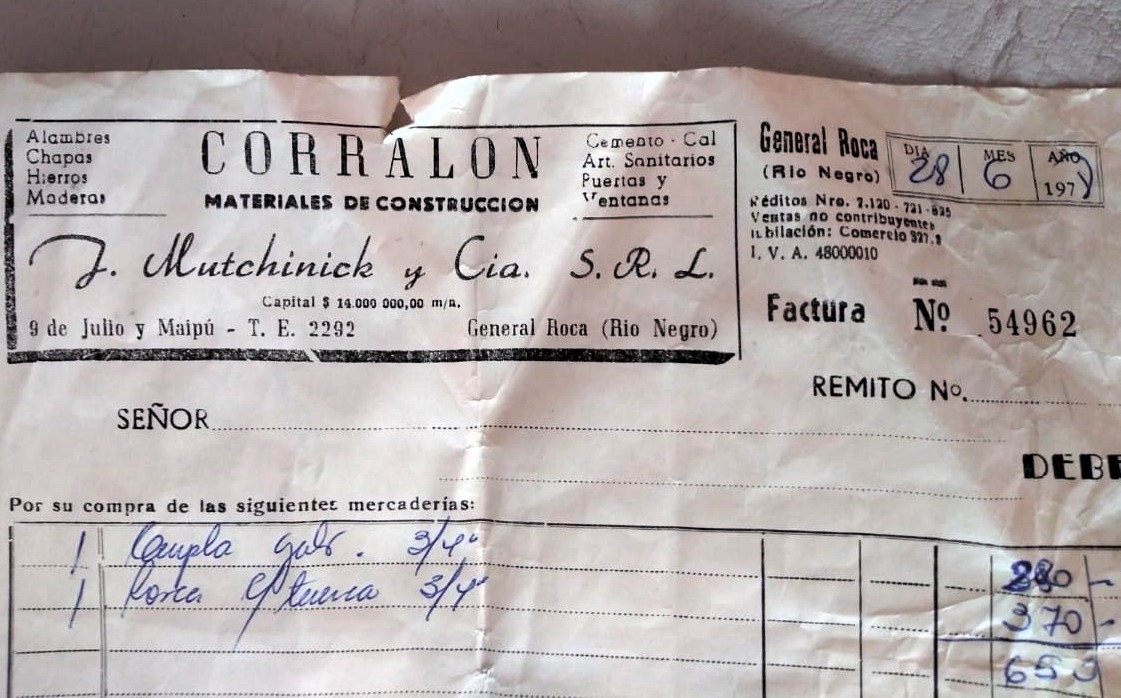 Alambres
Chapas
Hierros
Maderas
CORRALON
MATERIALES DE CONSTRUCCION
Cemento - Cal
Art. Sanitarios
Puertas y
Ventanas
J. Mutchinick y Cia. S. R. L.
Capital $ 14.000 000,00 m/n.
9 de Julio y Maipú - T. E. 2292 General Roca (Rio Negro)
General Roca
(Rio Negro)
DIA MES AÑO
28 6 197
Réditos Nro. 7.120 - 721 -
Ventas no contribuyentes
Jubilación: Comercio
I. V. A. 48000010
Factura Nº 54962
REMITO Nº.
SEÑOR
DEBE
Por su compra de las siguientes mercaderías:
1 Cupla galv. 3/4" 280 -
1 Rosca c/ tuerca 3/4" 370 -
650